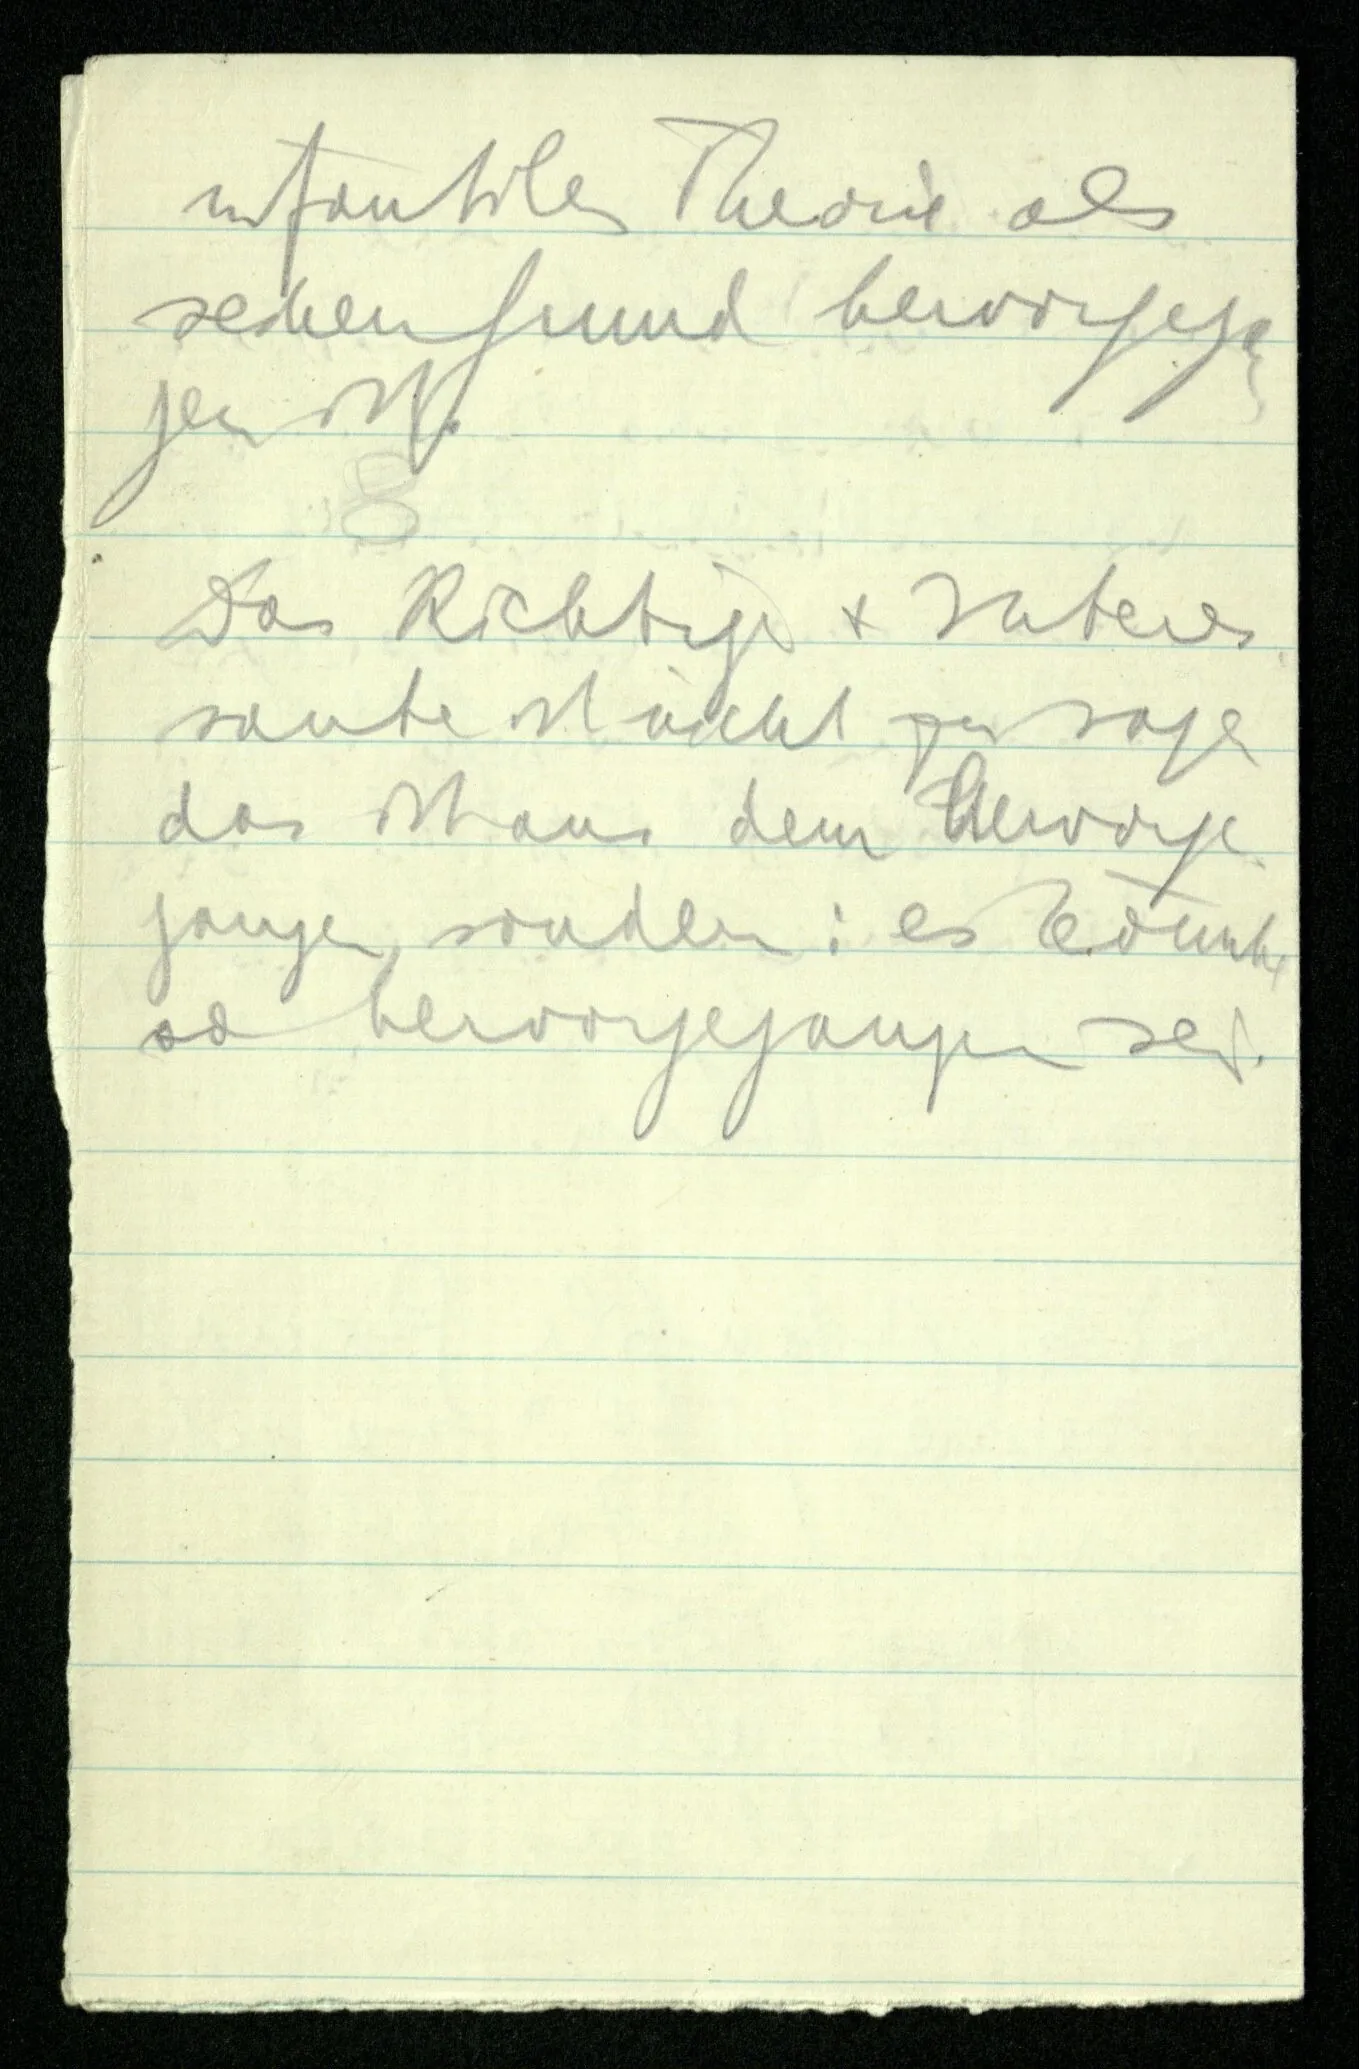 infantilen Theorie als
seinen Grund hervorgegan
gen ist.
8
Das Richtige + Interes
sante ist nicht zu sagen
das ist aus dem hervorge
gangen sondern: es könnte
so hervorgegangen sei.